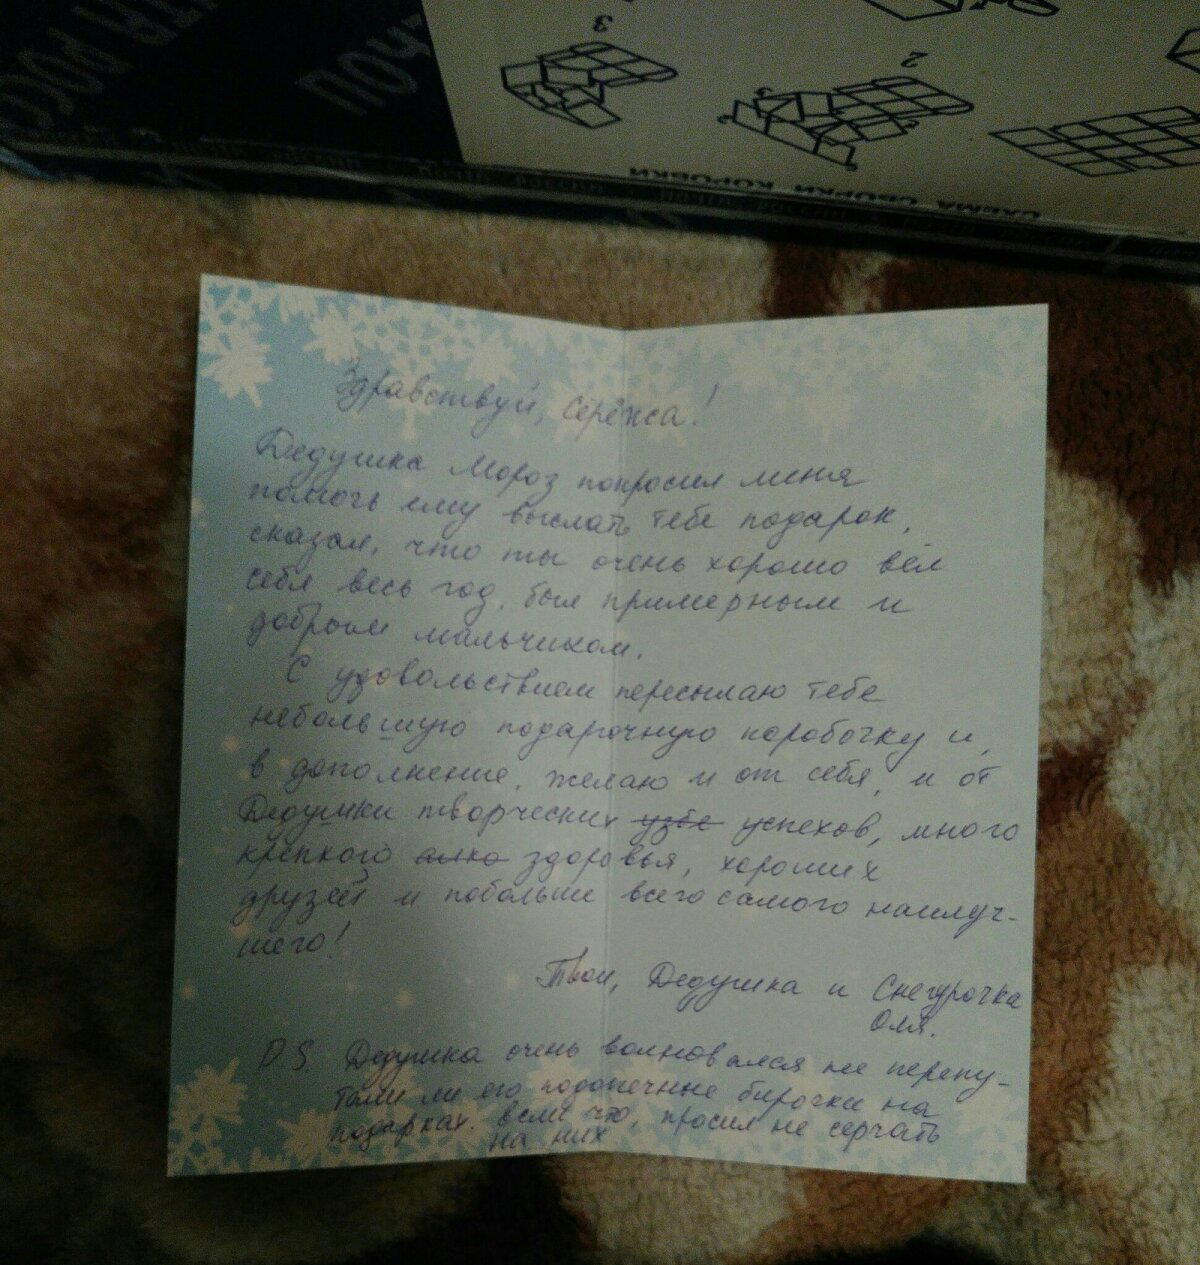 3
2
СХЕМА СБОРКИ КОРОБКИ
Здравствуй, Серёжа!
Дедушка Мороз попросил меня
помочь ему выслать тебе подарок,
сказал, что ты очень хорошо вёл
себя весь год, был примерным и
добрым мальчиком.
С удовольствием пересылаю тебе
небольшую подарочную коробочку и,
в дополнение, желаю и от себя, и от
Дедушки творческих успехов, много
крепкого алко здоровья, хороших
друзей и побольше всего самого наилуч-
шего!
Твои, Дедушка и Снегурочка
Оля.
P.S. Дедушка очень волновался не перепу-
тали ли его подопечные бирочки на
подарках. Если что, просил не серчать
на них